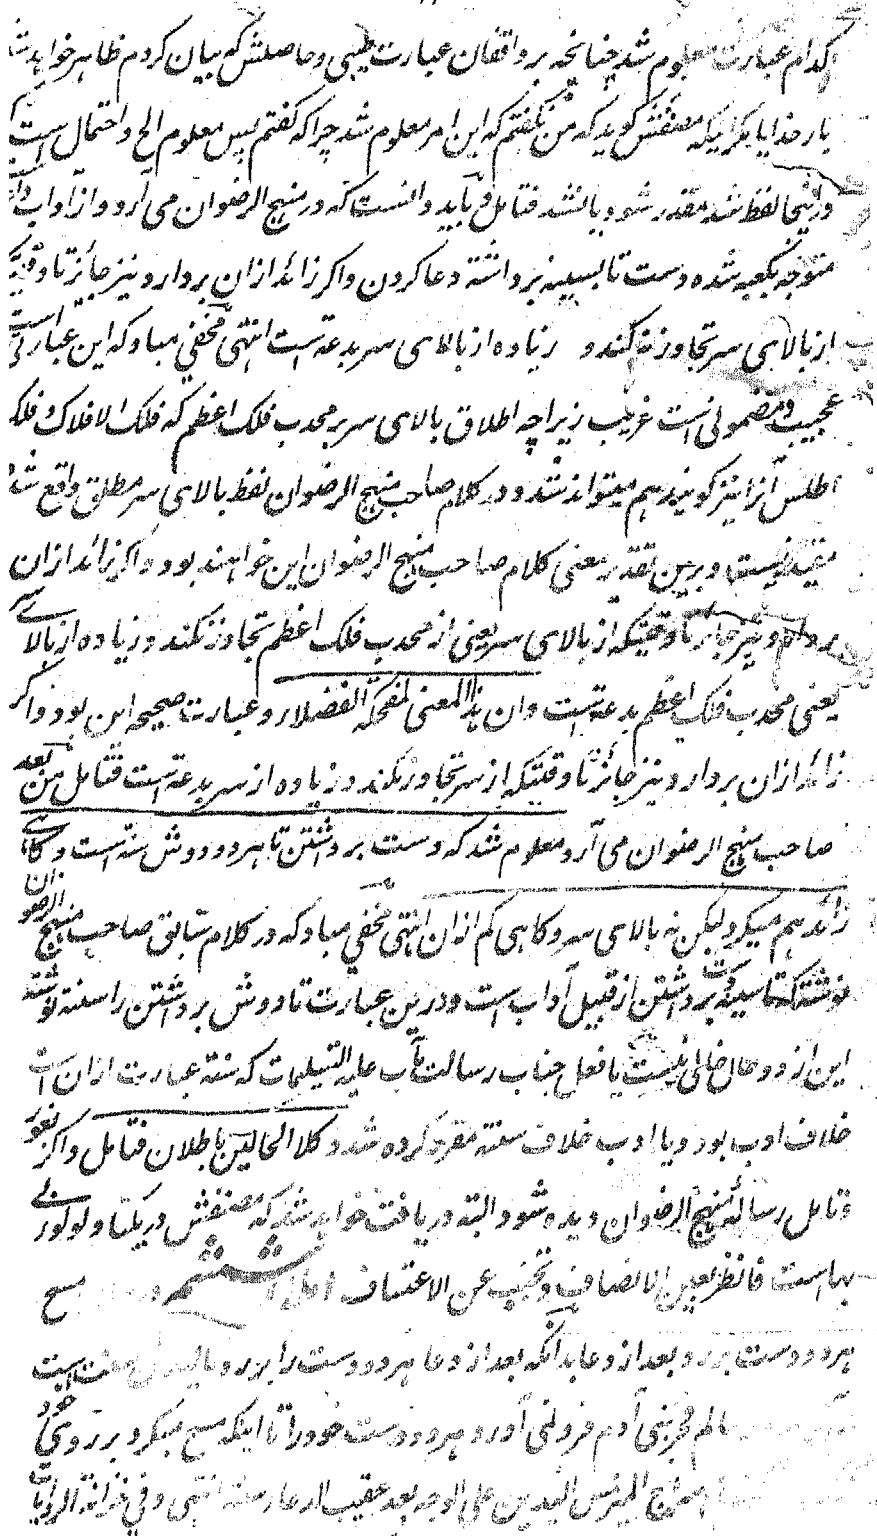 کدام عبارت معلوم شد چنانچه بر واقفان عبارت طیبی و حاصلش که بیان کردم ظاهر خواهد شد
بار خدایا مگر اینکه مصنفش گوید که من نگفتم که این امر معلوم شد چرا که گفتم پس معلوم الخ و احتمال است
درینجا لفظ شد مقدر شود یا نشد فتامل و باید دانست که در منهج الرضوان می آرد و از آداب
متوجه بکعبه شده دست تا بسینه برداشته دعا کردن و اگر زائد ازان بردارد نیز جائز تا وقتیکه
از بالای سر تجاوز نه کند و زیاده از بالای سر بدعة است انتهی مخفی مباد که این عبارتی است
عجیب و مضمونی است غریب زیرا چه اطلاق بالای سر بر محدب فلک اعظم که فلک الافلاک و فلک
اطلس آنرا نیز گویند هم میتواند شد و در کلام صاحب منهج الرضوان لفظ بالای سر مطلق واقع شد
مقید نیست و برین تقدیر معنی کلام صاحب منهج الرضوان این خواهند بود و اگر زائد ازان
بردارد نیز جائز تا وقتیکه از بالای سر یعنی از محدب فلک اعظم تجاوز نکند و زیاده از بالاے سر
یعنی محدب فلک اعظم بدعة است و ان هذا المعنی لمضحکة الفضلاء و عبارت صحیحه این بود و اگر
زائد ازان بردارد نیز جائز تا وقتیکه از سر تجاوز نکند و زیاده از سر بدعة است فتامل من بعد
صاحب منهج الرضوان می آرد معلوم شد که دست برداشتن تا هر دو دوش سنة است و گاهے
زائد هم میکرد لیکن نه بالای سر و گاهی کم ازان انتهی مخفی مباد که در کلام سابق صاحب منهج الرضوان
نوشته که تا سینه دست برداشتن از قبیل آداب است و درین عبارت تا دوش برداشتن را سنة نوشته
این از دو حال خالی نیست یا فعل جناب رسالت مآب علیه التسلیمات که سنة عبارت ازان است
خلاف ادب بود و یا ادب خلاف سنة مقرر کرده شد و کلا الحالین باطلان فتامل و اگر بغور
و تامل رسالۀ منهج الرضوان دیده شود البته دریافت خواهد شد که مصنفش در یکتا و لولوے
بهاست فانظر بعین الانصاف و تجنب عن الاعتساف ششم مسح
هر دو دست بر رو بعد از دعا بدانکه بعد از دعا هر دو دست را بر رو مالیدن سنت است
عالم فخر بنی آدم فرو نمی آورد هر دو دست خود را تا اینکه مسح میکرد بر روی خود
الیدین علی الوجه بعد عقیب الدعاء سنة انتهی و فی خزانة الروایات